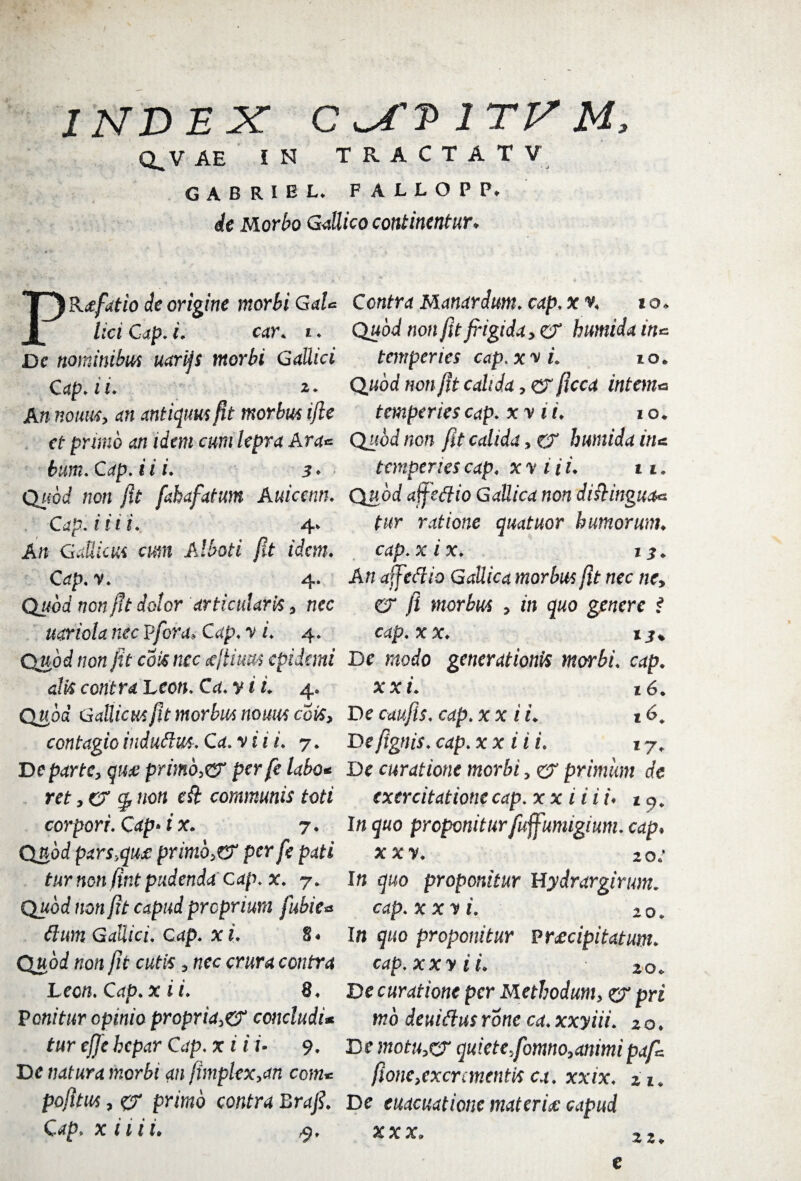 INDEX CAPITVM,
QVAE IN TRACTATV
GABRIEL. FALLOPP.
de Morbo Gallico continentur.
PRæfatio de origine morbi Gal-
lici Cap. i. car. 1.
De nominibus uarijs morbi Gallici
Cap. ii. 2.
An nouus, an antiquus ſit morbus iſte
et primò an idem cum lepra Ara-
bum. Cap. iii. 3.
Quòd non ſit ſahafatum Auicenn.
Cap. iiii. 4.
An Gallicus cum Alboti ſit idem.
Cap. v. 4.
Quòd non ſit dolor articularis, nec
uariola nec Pſora. Cap. vi. 4.
Quòd non ſit cōis nec æſtiuus epidemi
alis contra Leon. Ca. vii. 4.
Quòd Gallicus ſit morbus nouus cōis,
contagio inductus. Ca. viii. 7.
De parte, quæ primò,& per ſe labo-
ret, & ꝙ non eſt communis toti
corpori. Cap. ix. 7.
Quòd pars,quæ primò,& per ſe pati
tur non ſint pudenda Cap. x. 7.
Quòd non ſit capud proprium ſubie-
ctum Gallici. Cap. xi. 8.
Quòd non ſit cutis, nec crura contra
Leon. Cap. xii. 8.
Ponitur opinio propria,& concludi-
tur eſſe hepar Cap. xiii. 9.
De natura morbi an ſimplex,an com-
poſitus, & primò contra Braſ.
Cap. xiiii. 9.
Contra Manardum. cap. xv. 10.
Quòd non ſit frigida, & humida in-
temperies cap. xvi. 10.
Quòd non ſit calida, & ſicca intem-
temperies cap. xvii. 10.
Quòd non ſit calida, & humida in-
temperies cap. xviii. 11.
Quòd affectio Gallica non diſtingua-
tur ratione quatuor humorum.
cap. xix. 13.
An affectio Gallica morbus ſit nec ne,
& ſi morbus, in quo genere?
cap. xx. 13.
De modo generationis morbi. cap.
xxi. 16.
De cauſis. cap. xxii. 16.
De ſignis. cap. xxiii. 17.
De curatione morbi, & primùm de
exercitatione cap. xxiiii. 19.
In quo proponitur ſuffumigium. cap.
xxv. 20.
In quo proponitur Hydrargirum.
cap. xxvi. 20.
In quo proponitur Præcipitatum.
cap. xxvii. 20.
De curatione per Methodum, & pri
mò deuictus rōne ca. xxviii. 20.
De motu,& quiete,ſomno,animi paſ-
ſione,excrementis ca. xxix. 21.
De euacuatione materiæ capud
xxx. 22.
e